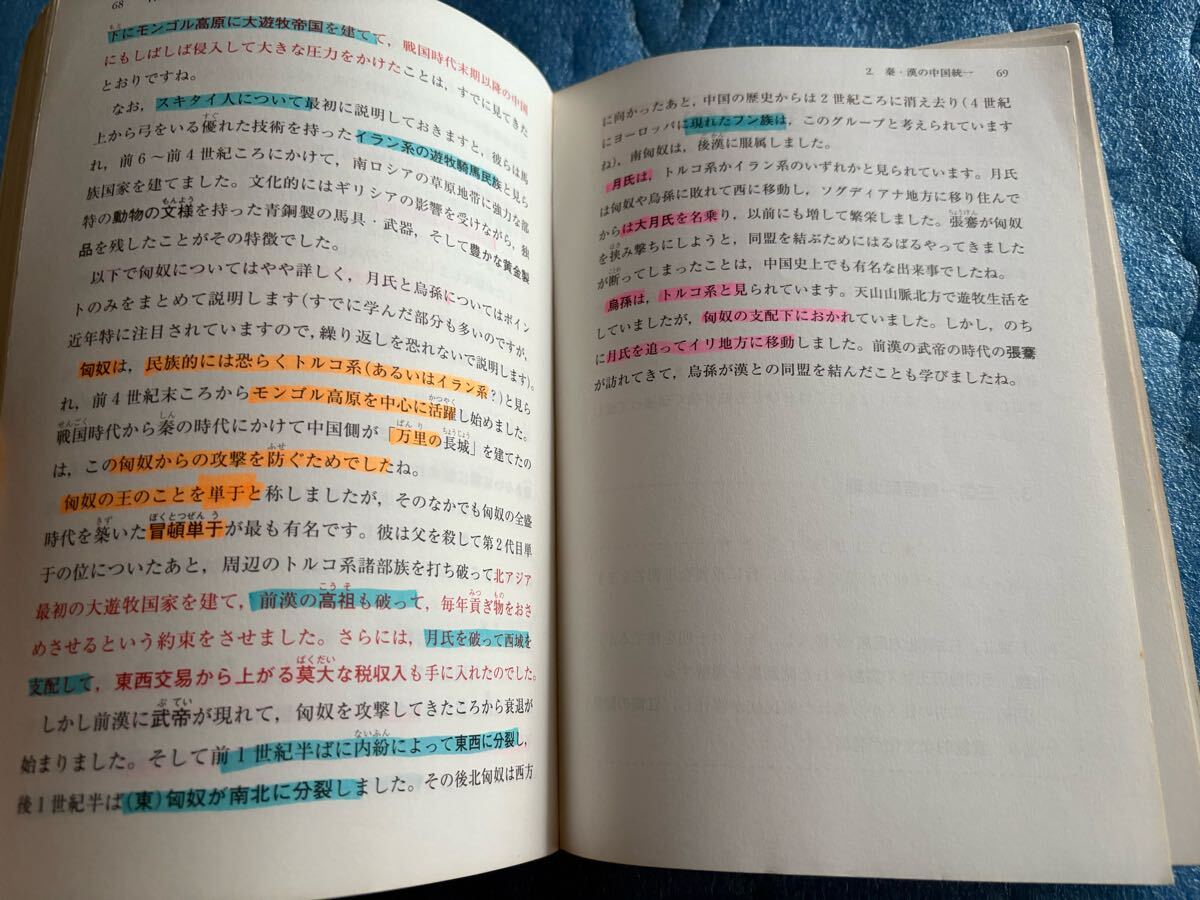 68
下にモンゴル高原に大遊牧帝国を建てて，戦国時代末期以降の中国
にもしばしば侵入して大きな圧力をかけたことは，すでに見てきた
とおりですね。
なお，スキタイ人について最初に説明しておきますと，彼らは馬
上から弓をいる優れた技術を持ったイラン系の遊牧騎馬民族と見ら
れ，前6～前4世紀ころにかけて，南ロシアの草原地帯に強力な部
族国家を建てました。文化的にはギリシアの影響を受けながら，独
特の動物の文様を持った青銅製の馬具・武器，そして豊かな黄金製
品を残したことがその特徴でした。
以下で匈奴についてはやや詳しく，月氏と烏孫についてはポイン
トのみをまとめて説明します(すでに学んだ部分も多いのですが，
近年特に注目されていますので，繰り返しを恐れないで説明します)。
匈奴は，民族的には恐らくトルコ系(あるいはイラン系？)と見ら
れ，前4世紀末ころからモンゴル高原を中心に活躍し始めました。
戦国時代から秦の時代にかけて中国側が「万里の長城」を建てたの
は，この匈奴からの攻撃を防ぐためでしたね。
匈奴の王のことを単于と称しましたが，そのなかでも匈奴の全盛
時代を築いた冒頓単于が最も有名です。彼は父を殺して第2代目単
于の位についたあと，周辺のトルコ系諸部族を打ち破って北アジア
最初の大遊牧国家を建て，前漢の高祖も破って，毎年貢ぎ物をおさ
めさせるという約束をさせました。さらには，月氏を破って西域を
支配して，東西交易から上がる莫大な税収入も手に入れたのでした。
しかし前漢に武帝が現れて，匈奴を攻撃してきたころから衰退が
始まりました。そして前1世紀半ばに内紛によって東西に分裂し，
後1世紀半ば(東)匈奴が南北に分裂しました。その後北匈奴は西方
2. 秦・漢の中国統一 69
に向かったあと，中国の歴史からは2世紀ころに消え去り(4世紀
にヨーロッパに現れたフン族は，このグループと考えられています
ね)，南匈奴は，後漢に服属しました。
月氏は，トルコ系かイラン系のいずれかと見られています。月氏
は匈奴や烏孫に敗れて西に移動し，ソグディアナ地方に移り住んで
からは大月氏を名乗り，以前にも増して繁栄しました。張騫が匈奴
を挟み撃ちにしようと，同盟を結ぶためにはるばるやってきました
が断ってしまったことは，中国史上でも有名な出来事でしたね。
烏孫は，トルコ系と見られています。天山山脈北方で遊牧生活を
していましたが，匈奴の支配下におかれていました。しかし，のち
に月氏を追ってイリ地方に移動しました。前漢の武帝の時代の張騫
が訪れてきて，烏孫が漢との同盟を結んだことも学びましたね。